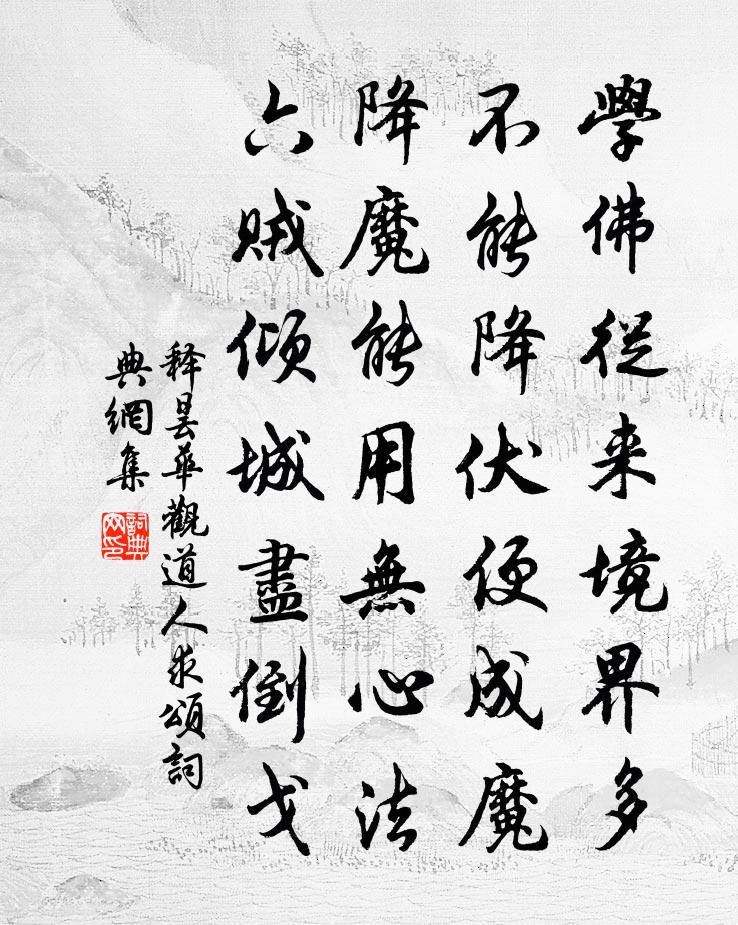 學佛從来境界多
不能降伏便成魔
降魔能用無心法
六賊傾城盡倒戈
釋曇華觀道人求頌詞
典網集
詞典
网印